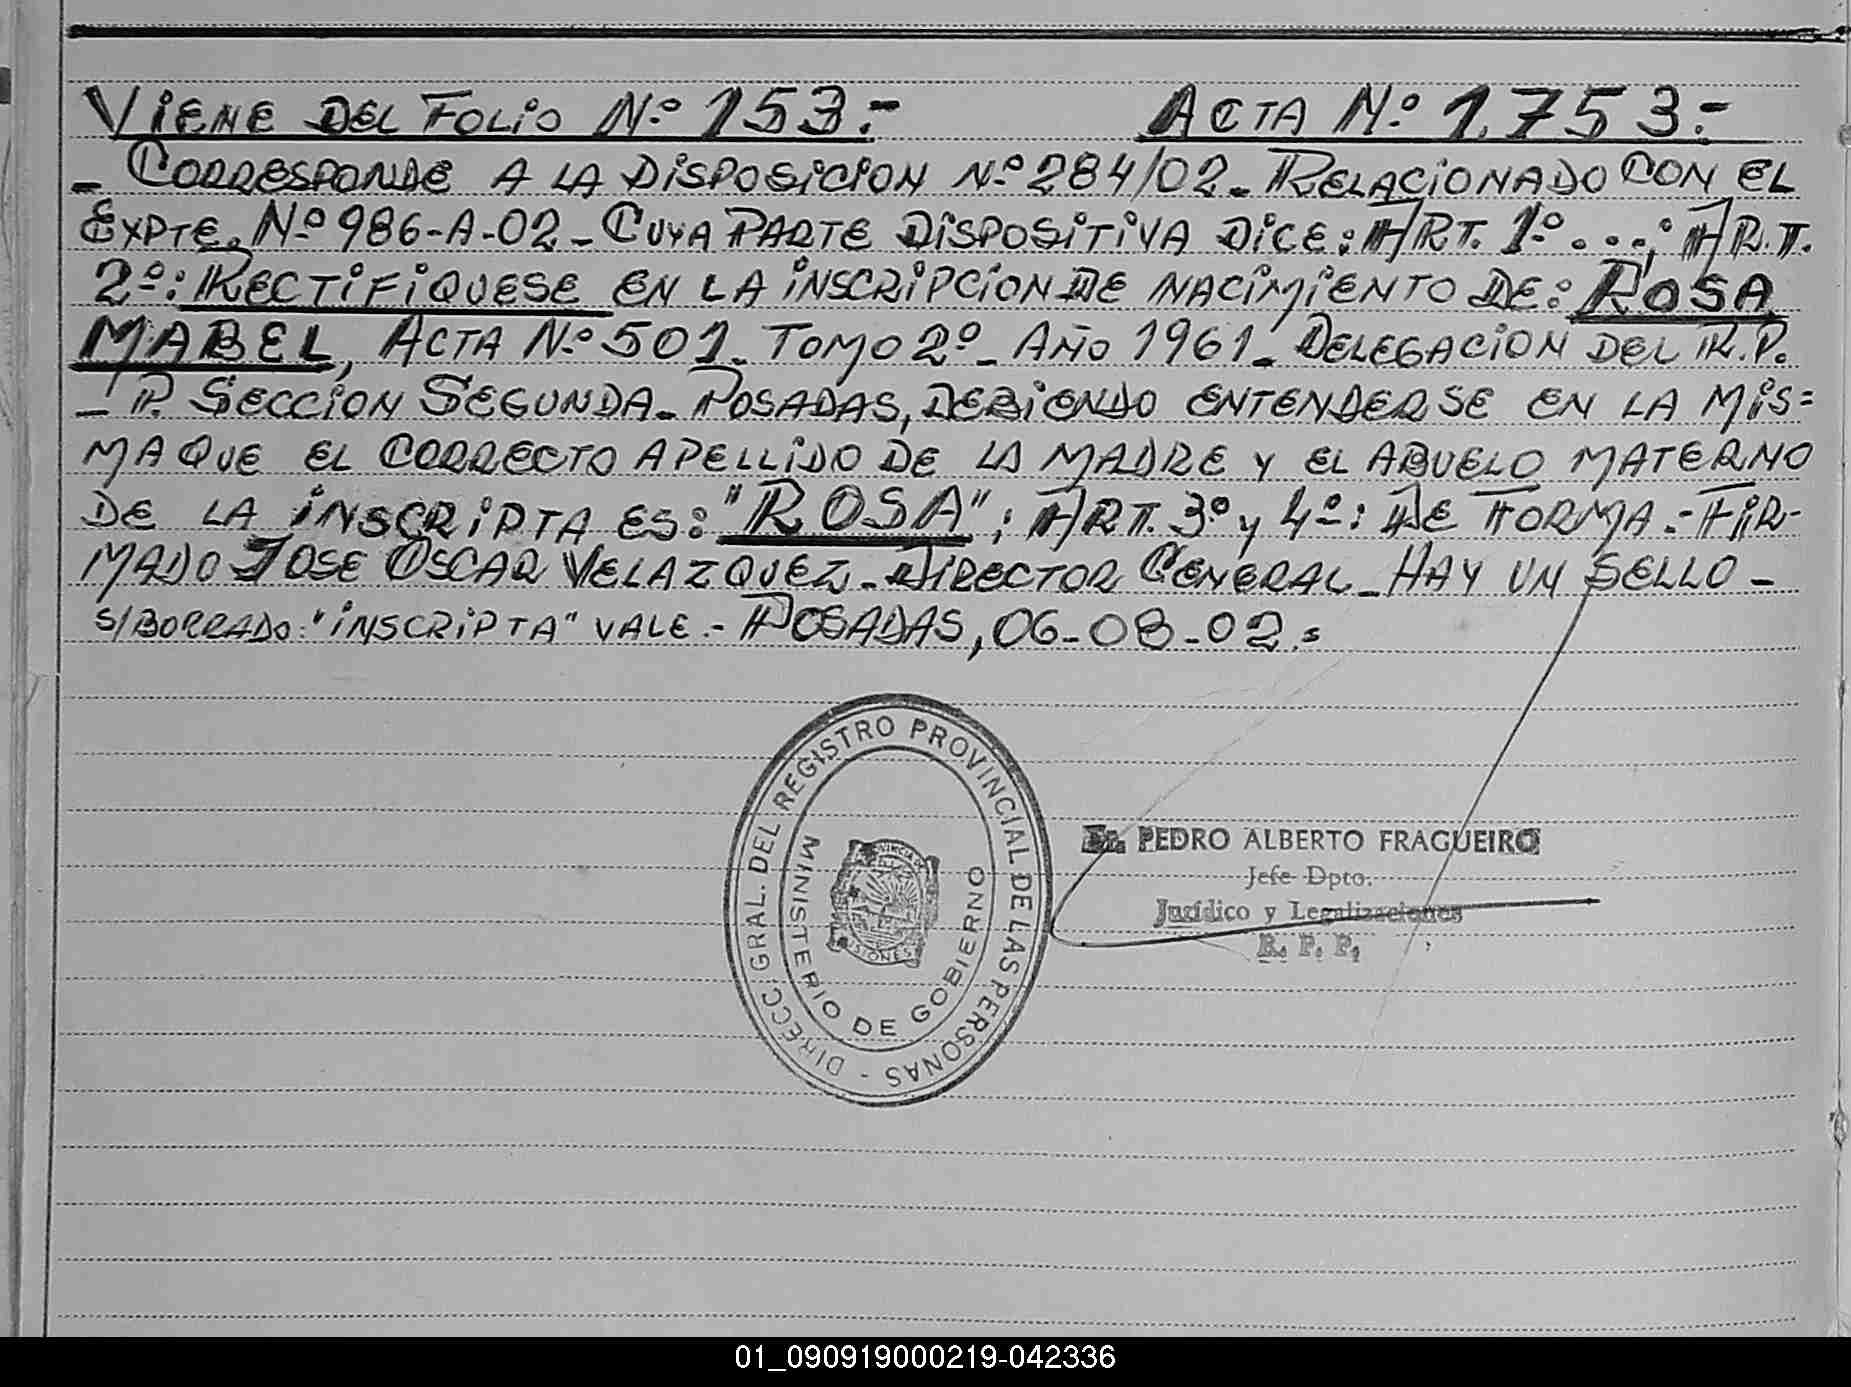 VIENE DEL FOLIO Nº 153.- ACTA Nº 1.753.-
- CORRESPONDE A LA DISPOSICION Nº 284/02 - RELACIONADO CON EL
EXPTE. Nº 986-A-02 - CUYA PARTE DISPOSITIVA DICE: ART. 1º...; ART.
2º: RECTIFIQUESE EN LA INSCRIPCION DE NACIMIENTO DE: ROSA
MABEL, ACTA Nº 501 - TOMO 2º - AÑO 1961 - DELEGACION DEL R.P.
- P. SECCION SEGUNDA - POSADAS, DEBIENDO ENTENDERSE EN LA MIS=
MA QUE EL CORRECTO APELLIDO DE LA MADRE Y EL ABUELO MATERNO
DE LA INSCRIPTA ES: "ROSA"; ART. 3º y 4º: DE FORMA.- FIR-
MADO JOSE OSCAR VELAZQUEZ - DIRECTOR GENERAL - HAY UN SELLO -
S/BORRADO: "INSCRIPTA" VALE.- POSADAS, 06-08-02.=
DIRECC. GRAL. DEL REGISTRO PROVINCIAL DE LAS PERSONAS -
MINISTERIO DE GOBIERNO
PROVINCIA DE
MISIONES
PEDRO ALBERTO FRAGUEIRO
Jefe Dpto.
Jurídico y Legalizaciones
R. P. P.
01_090919000219-042336